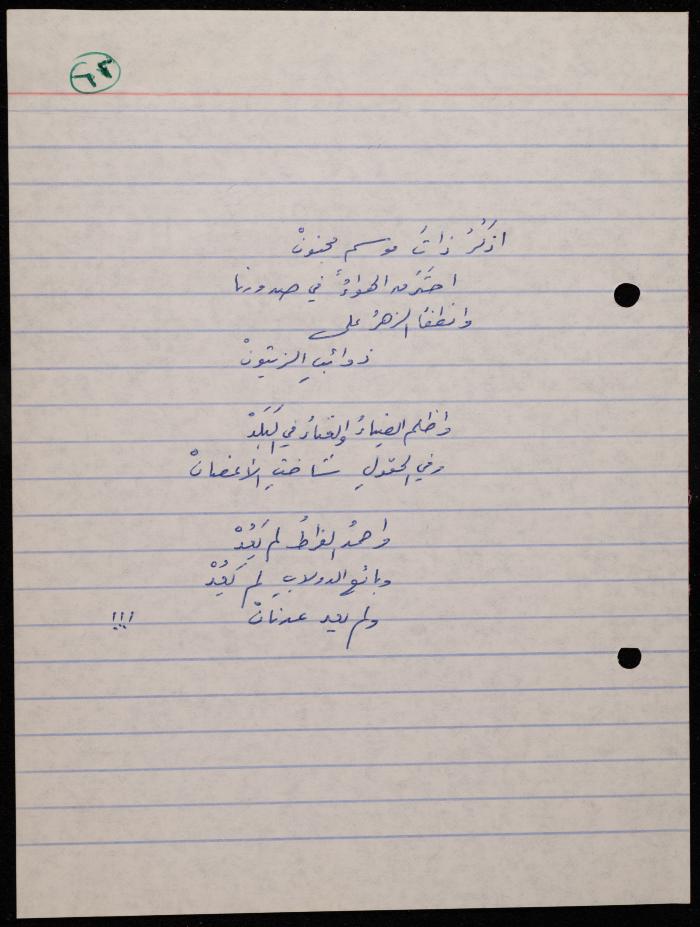 ٦٣
اذكُرُ ذاتَ موسم مجنونْ
احتَرق الهواءُ في صدورنا
وانطفأ الزهرُ على
ذوائبِ الزيتونْ
واظلم الضياءُ والغناءُ في البَلَدْ
وفي الحقولِ شاختِ الأغصانْ
واحمدُ الخراطُ لم يَعُدْ
وبائع الدولابِ لم يَعُدْ
ولم يعد عدنانْ !!!